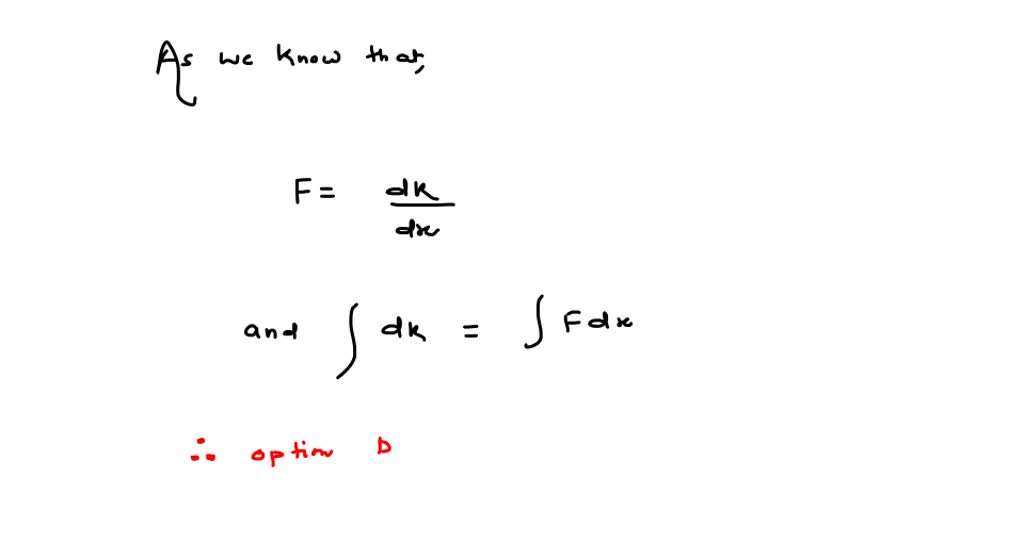 As we know that,
F = dk/dx
and ∫ dk = ∫ F dx
∴ option D